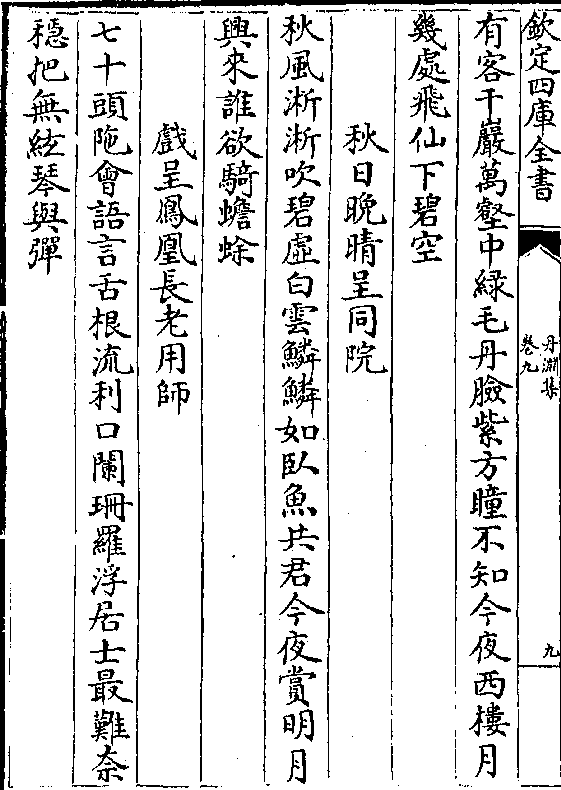 欽定四庫全書
丹淵集
卷九
九
有客千巖萬壑中綠毛丹臉紫方瞳不知今夜西樓月
幾處飛仙下碧空
秋日晚晴呈同院
秋風淅淅吹碧虛白雲鱗鱗如臥魚共君今夜賞明月
興來誰欲騎蟾蜍
戲呈鳳凰長老用師
七十頭陁會語言舌根流利口闌珊羅浮居士最難奈
穩把無絃琴與彈